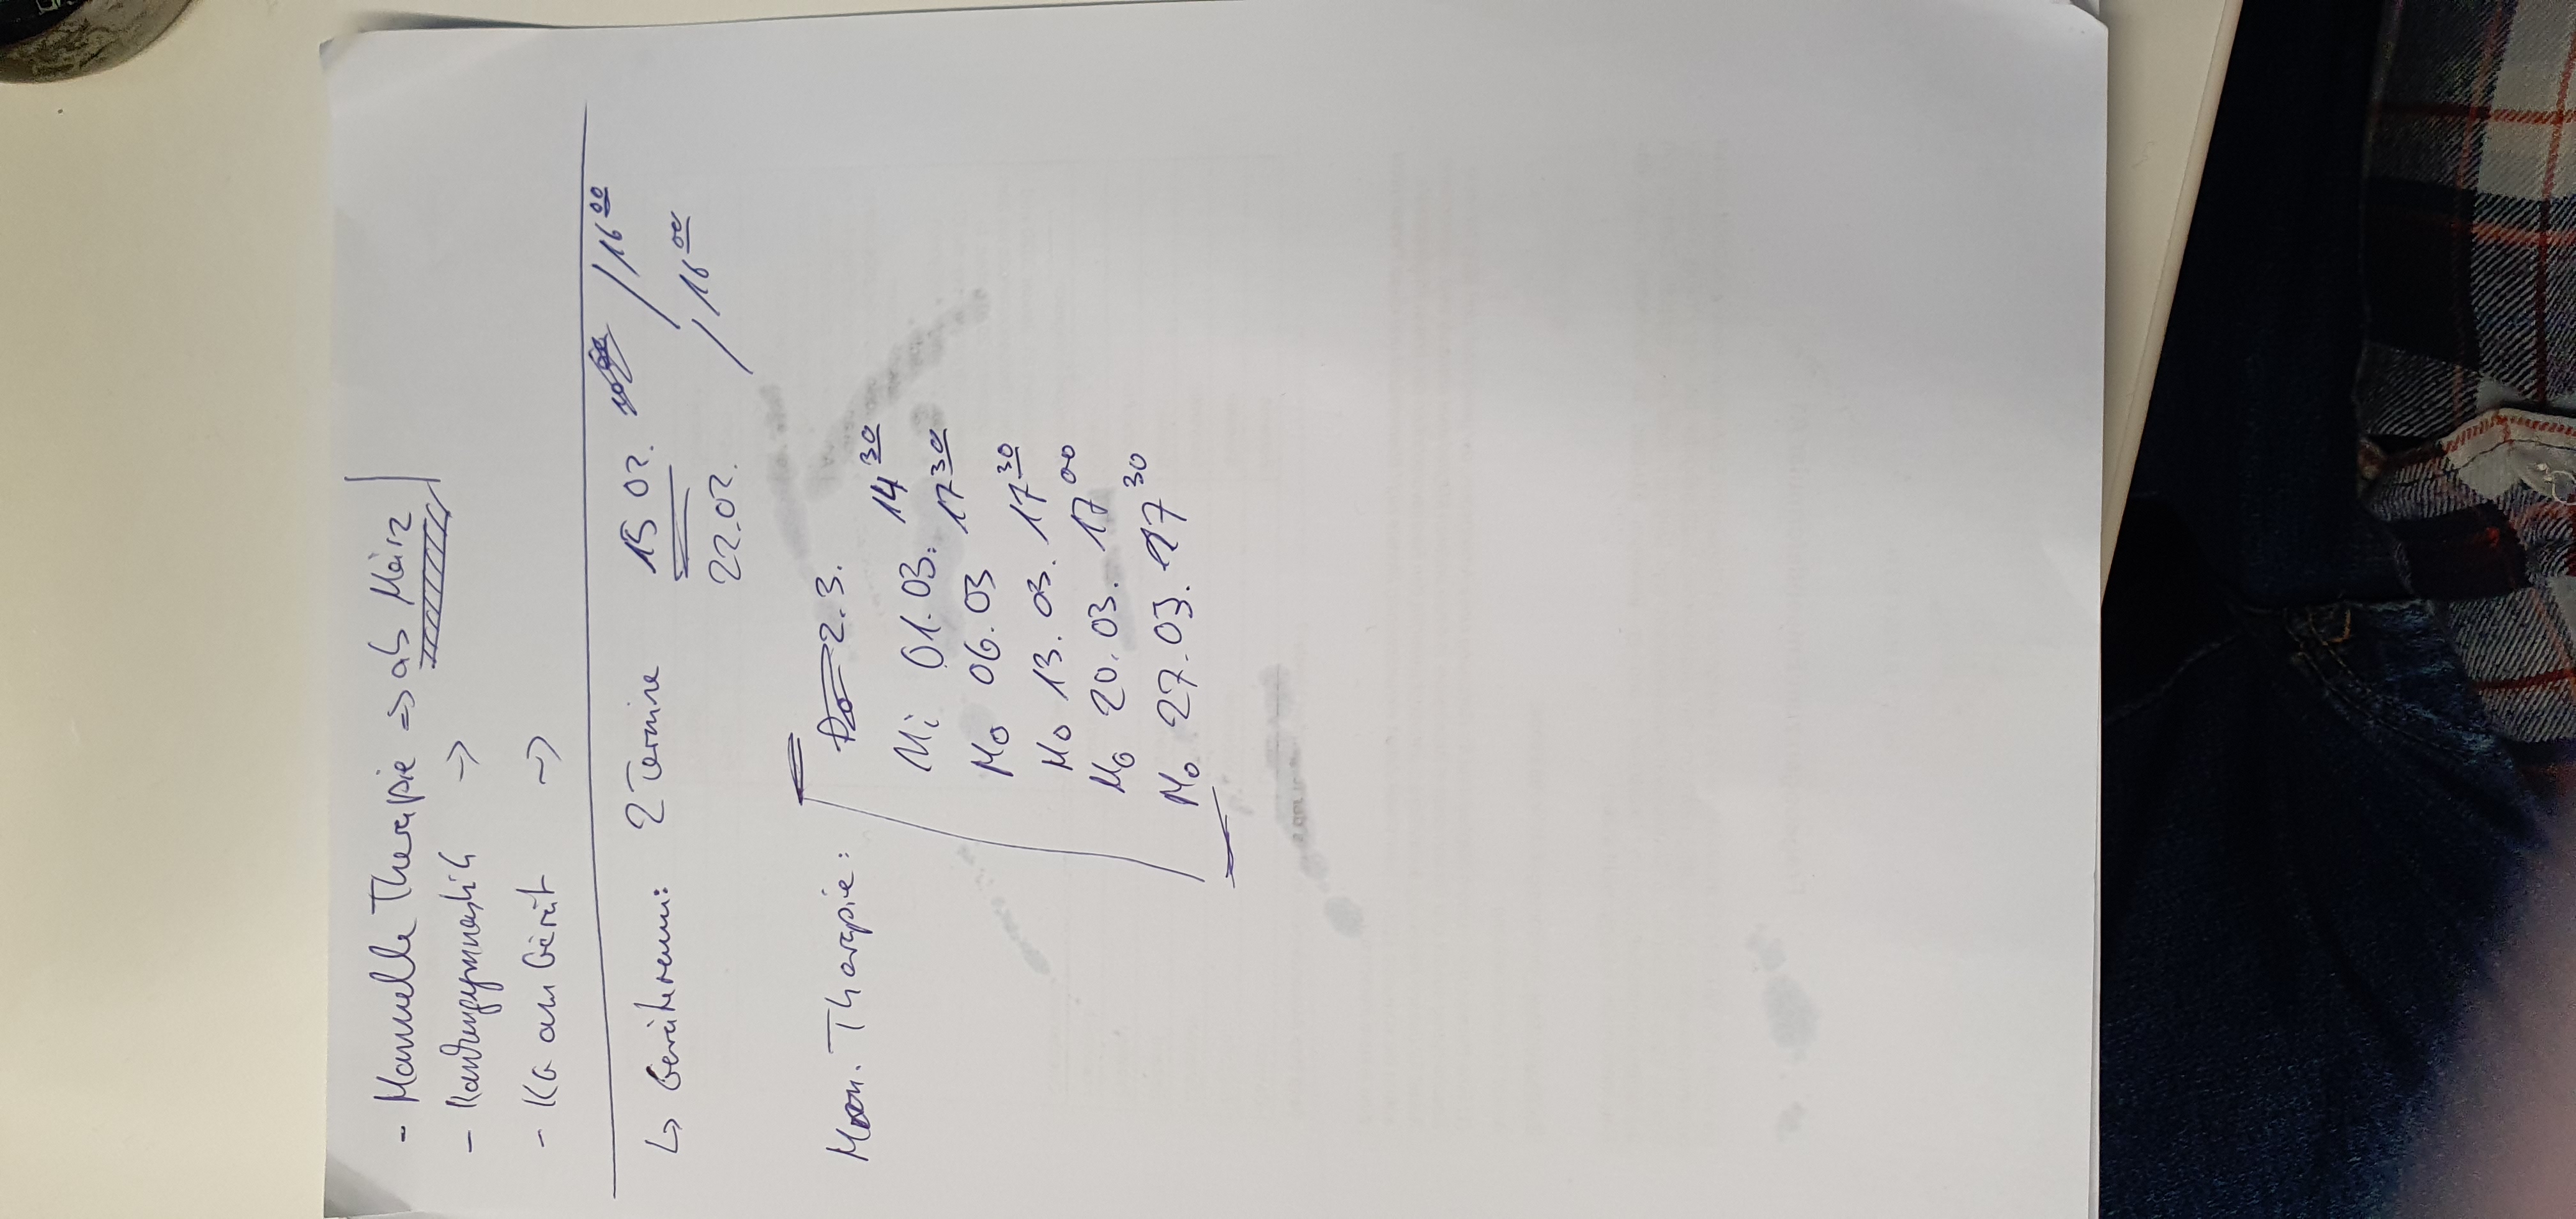 - Manuelle Therapie => ab März
- Krankengymnastik ->
- KG am Gerät ->
↳ Geräteraum: 2 Termine 15 02. / 16 00
22.02. / 16 00
Man. Therapie: 2.3. 14 30
Mi 01.03. 17 30
Mo 06.03 17 30
Mo 13.03. 17 00
Mo 20.03. 17 30
Mo 27.03.